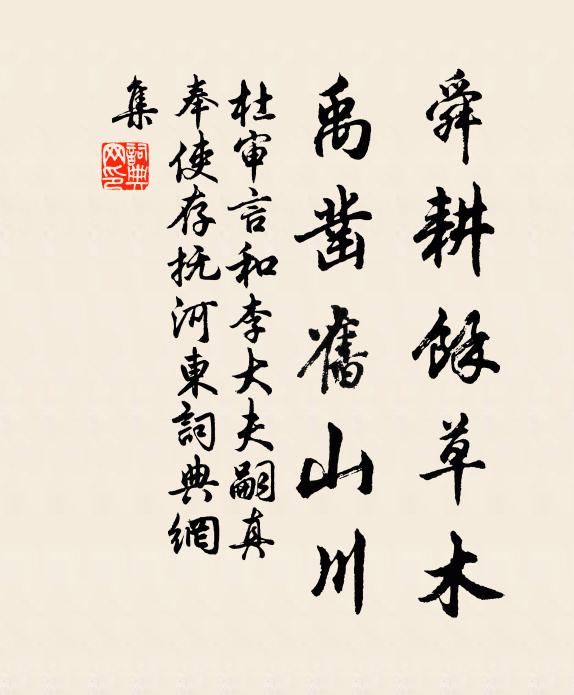 舜耕餘草木
禹凿舊山川
杜审言和李大夫嗣真
奉使存抚河東詞典網
集
詞典
网印